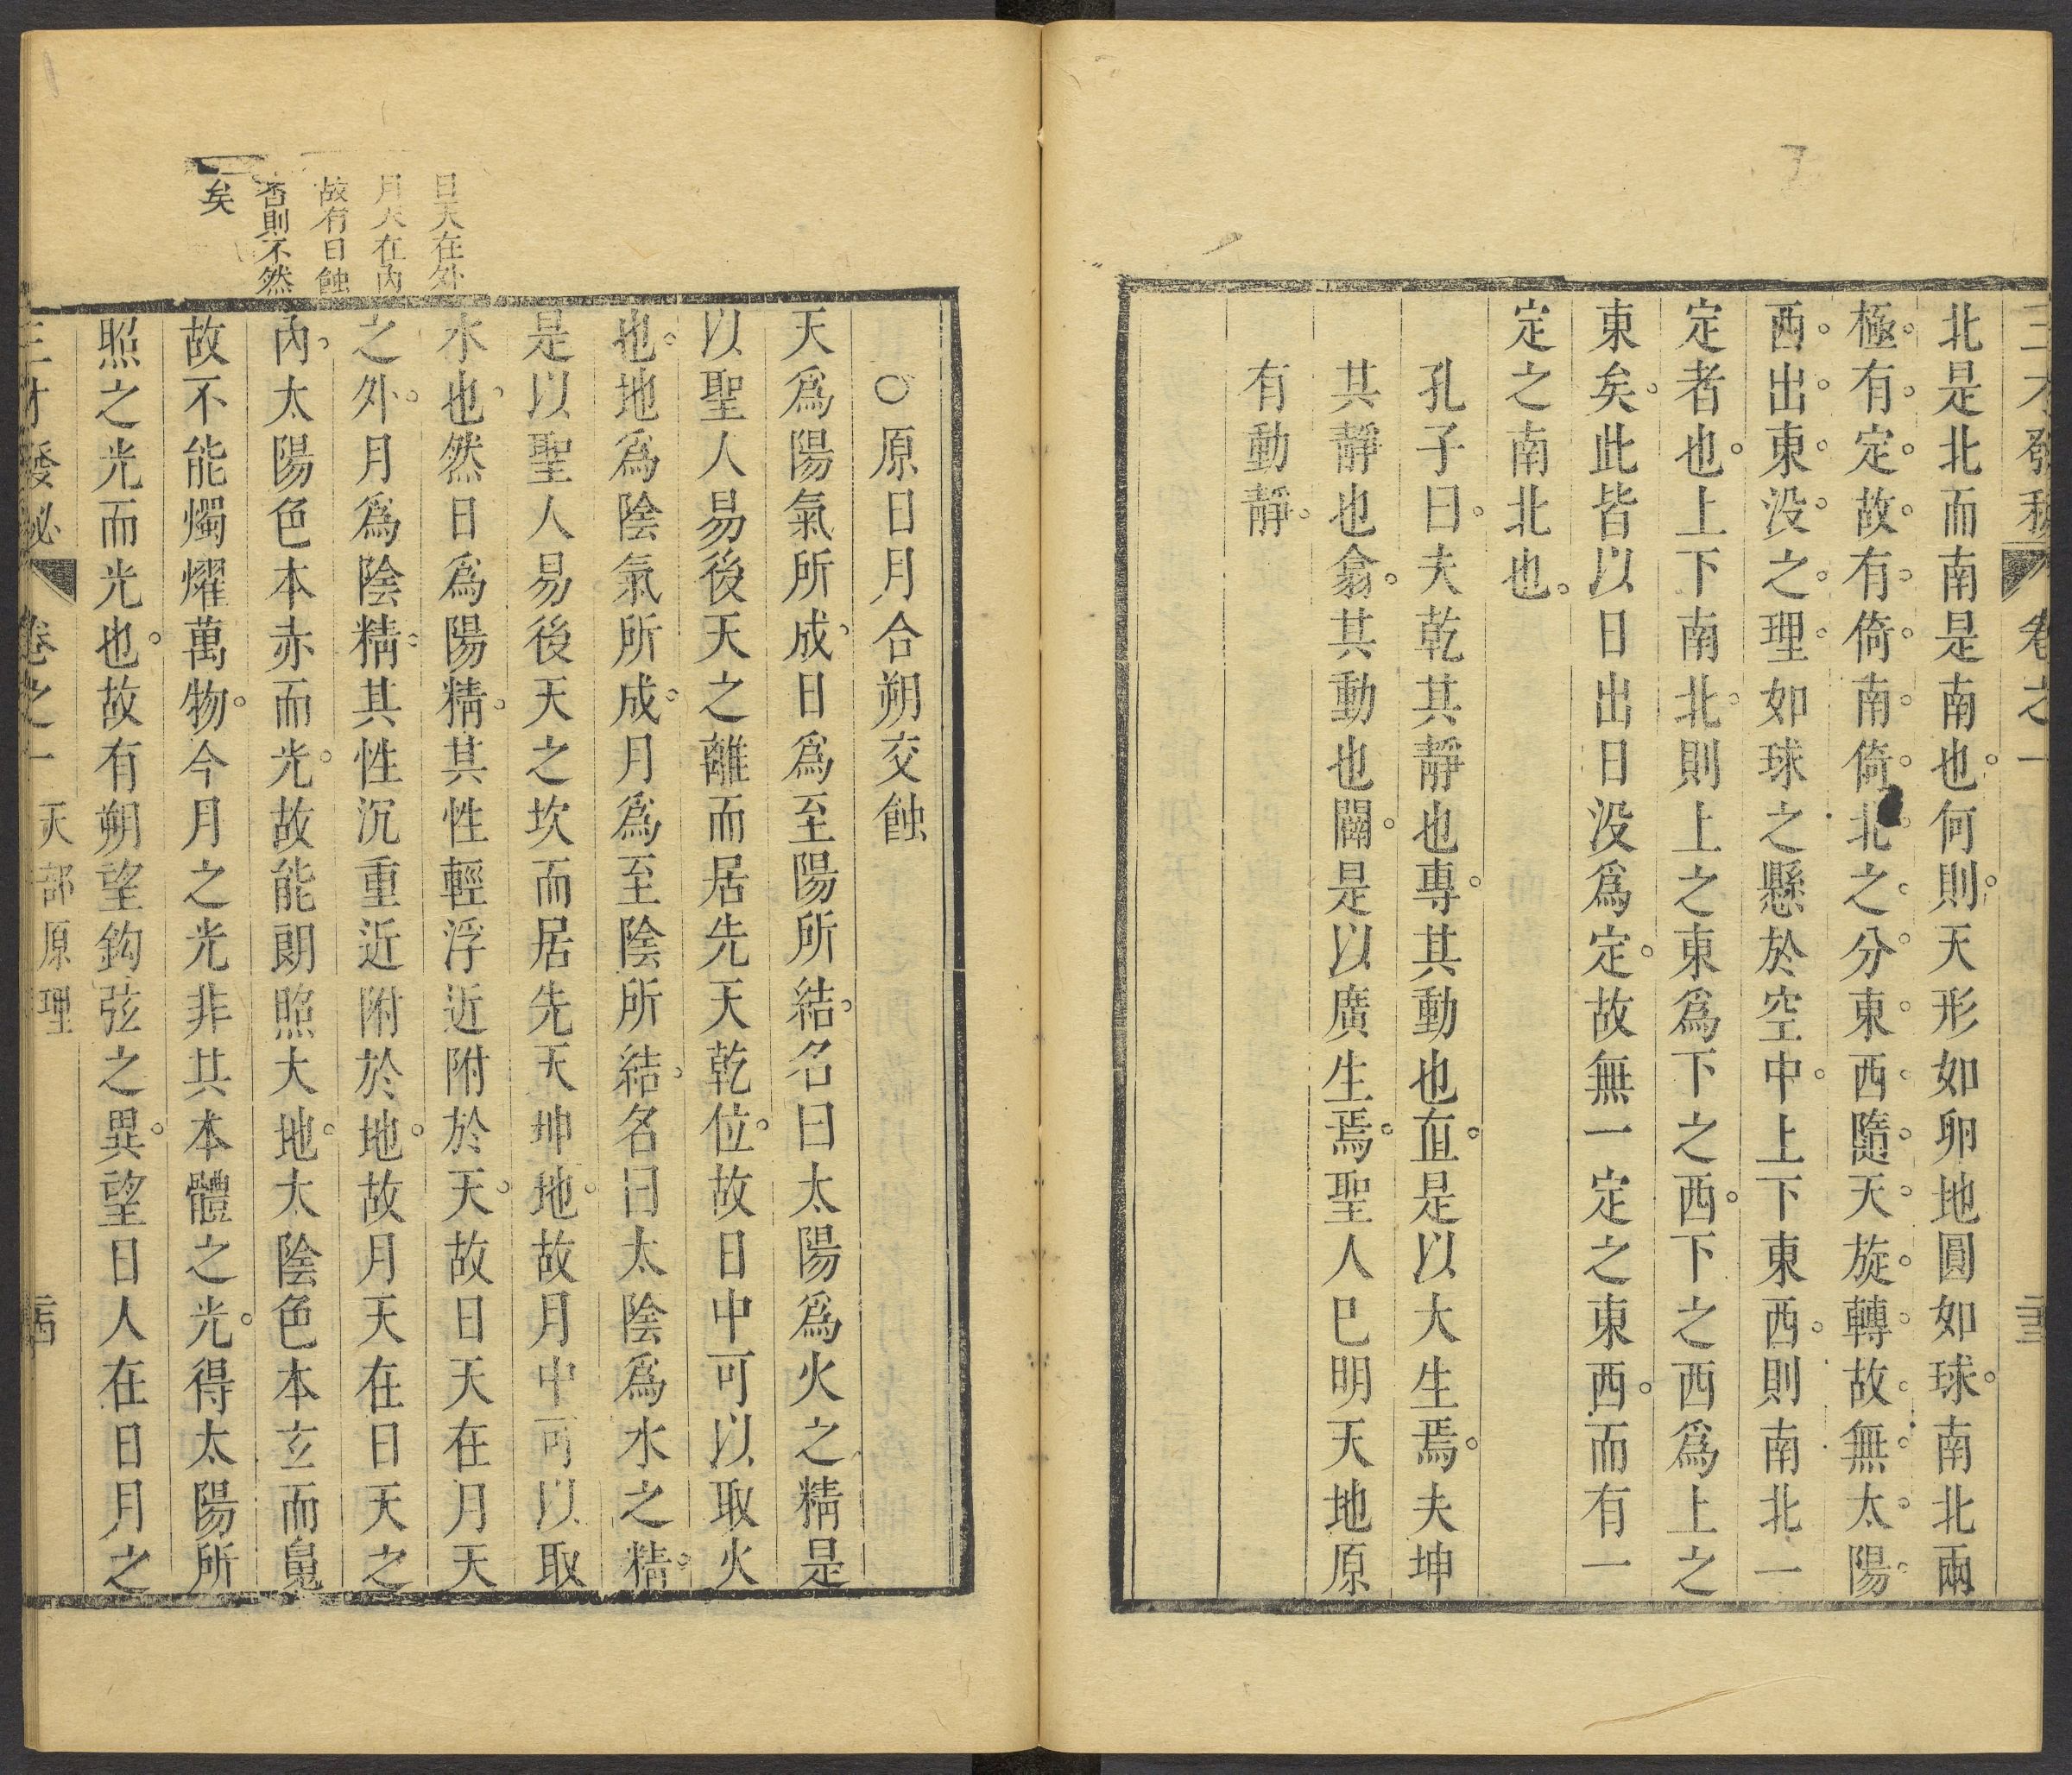 三才發秘 卷之一
北是北而南是南也何則天形如卵地圓如球南北兩
極有定故有倚南倚北之分東西隨天旋轉故無太陽
西出東没之理如球之懸於空中上下東西則南北一
定者也上下南北則上之東爲下之西下之西爲上之
東矣此皆以日出日没爲定故無一定之東西而有一
定之南北也
孔子曰夫乾其靜也專其動也直是以大生焉夫坤
其靜也翕其動也闢是以廣生焉聖人已明天地原
有動靜
○原日月合朔交蝕
天爲陽氣所成日爲至陽所結名曰太陽爲火之精是
以聖人易後天之離而居先天乾位故日中可以取火
也地爲陰氣所成月爲至陰所結名曰太陰爲水之精
是以聖人易後天之坎而居先天坤地故月中可以取
水也然日爲陽精其性輕浮近附於天故日天在月天
之外月爲陰精其性沉重近附於地故月天在日天之
內太陽色本赤而光故能朗照大地太陰色本玄而鬼
故不能燭燿萬物今月之光非其本體之光得太陽所
照之光而光也故有朔望鈎弦之異望日人在日月之
日天在外
月天在內
故有日蝕
否則不然
矣
三才發秘 卷之一 天部原理